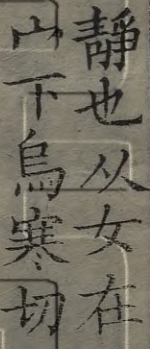 靜也从女在
宀下烏寒切